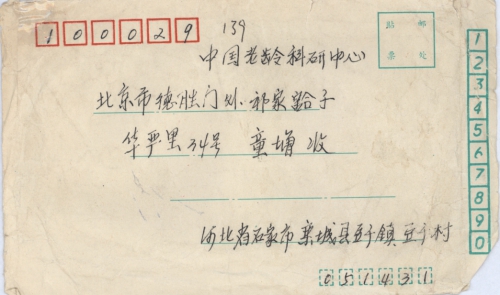 100029
139
贴邮
票处
中国老龄科研中心
北京市德胜门外祁家豁子
华严里34号 童增 收
河北省石家市栾城县豆于镇豆于村
051431
1
2
3
4
5
6
7
8
9
0